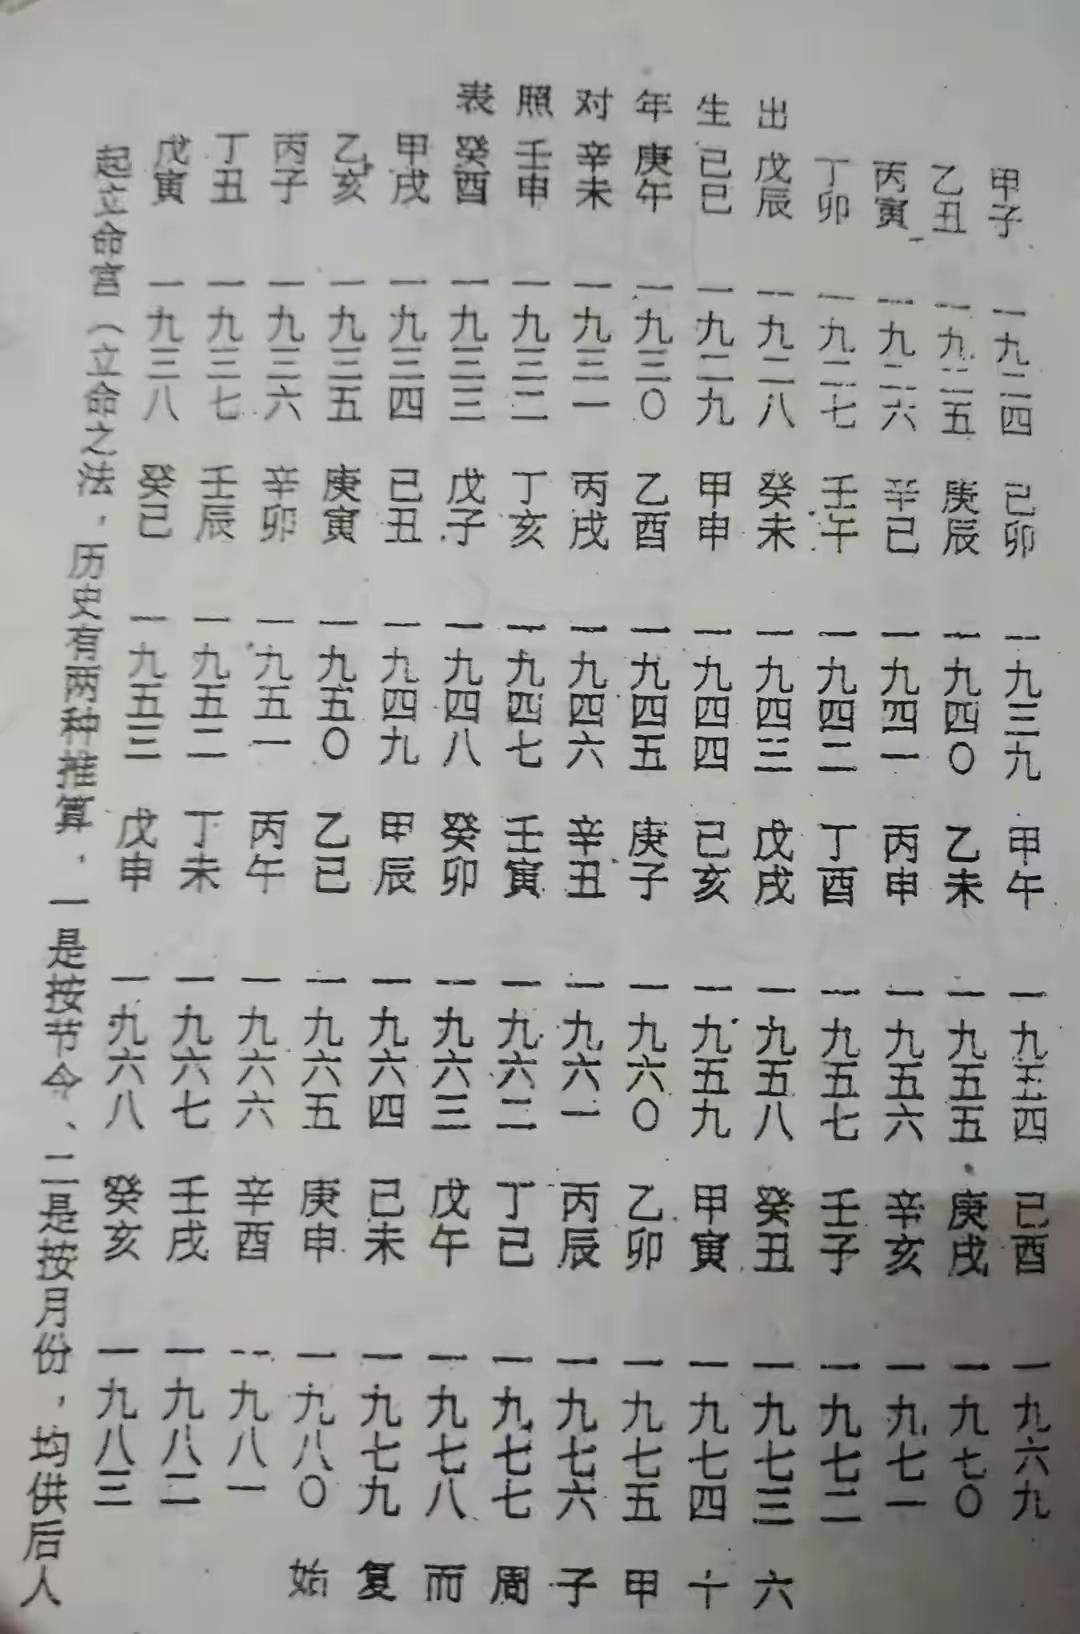 出生年对照表
甲子 一九二四 己卯 一九三九 甲午 一九五四 己酉 一九六九
乙丑 一九二五 庚辰 一九四〇 乙未 一九五五 庚戌 一九七〇
丙寅 一九二六 辛巳 一九四一 丙申 一九五六 辛亥 一九七一
丁卯 一九二七 壬午 一九四二 丁酉 一九五七 壬子 一九七二
戊辰 一九二八 癸未 一九四三 戊戌 一九五八 癸丑 一九七三
己巳 一九二九 甲申 一九四四 己亥 一九五九 甲寅 一九七四
庚午 一九三〇 乙酉 一九四五 庚子 一九六〇 乙卯 一九七五
辛未 一九三一 丙戌 一九四六 辛丑 一九六一 丙辰 一九七六
壬申 一九三二 丁亥 一九四七 壬寅 一九六二 丁巳 一九七七
癸酉 一九三三 戊子 一九四八 癸卯 一九六三 戊午 一九七八
甲戌 一九三四 己丑 一九四九 甲辰 一九六四 己未 一九七九
乙亥 一九三五 庚寅 一九五〇 乙巳 一九六五 庚申 一九八〇
丙子 一九三六 辛卯 一九五一 丙午 一九六六 辛酉 一九八一
丁丑 一九三七 壬辰 一九五二 丁未 一九六七 壬戌 一九八二
戊寅 一九三八 癸巳 一九五三 戊申 一九六八 癸亥 一九八三
六十甲子周而复始
起立命宫（立命之法，历史有两种推算，一是按节令、二是按月份，均供后人